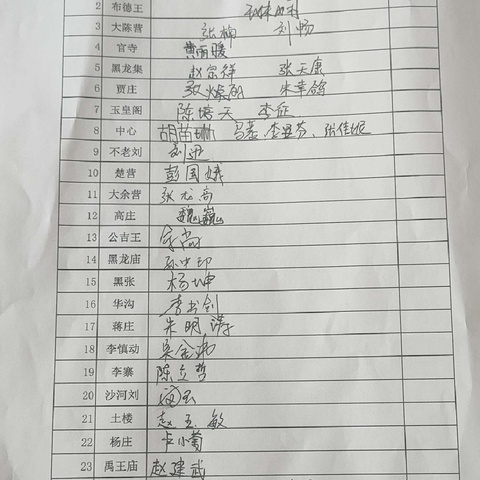 2 布德王
3 大陈营 张楠 刘畅
4 官寺 黄雨暖
5 黑龙集 赵宗祥 张天康
6 贾庄 朱幸鸽
7 玉皇阁 陈培天 李征
8 中心 胡苗珊 张佳妮
9 不老刘 刘迅
10 楚营 彭国娥
11 大余营 张龙奇
12 高庄 魏巍
13 公吉王 宋尚
14 黑龙庙
15 黑张 杨坤
16 华沟 李书剑
17 蒋庄 朱明涛
18 李慎动
19 李寨 陈立哲
20 沙河刘
21 土楼 赵玉敏
22 杨庄 卡小菊
23 禹王庙 赵建武